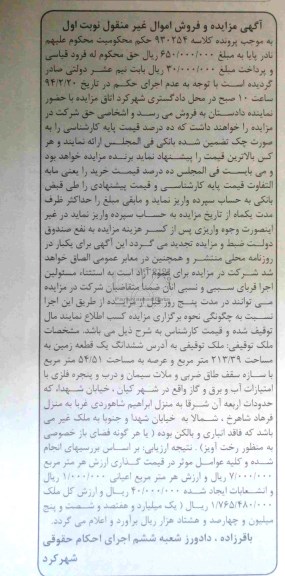 آگهی مزایده و فروش اموال غیر منقول نوبت اول
به موجب پرونده کلاسه ۹۳۰۲۵۴ حکم محکومیت محکوم علیهم
نادر پایا به مبلغ ۶۵۰/۰۰۰/۰۰۰ ریال حق محکوم له فرود قیاسی
و پرداخت مبلغ ۳۰/۰۰۰/۰۰۰ ریال بابت نیم عشر دولتی صادر
گردیده است با توجه به عدم اجرای حکم در تاریخ ۹۴/۳/۲۰
ساعت ۱۰ صبح در محل دادگستری شهرکرد اتاق مزایده با حضور
نماینده دادستان به فروش می رسد و اشخاصی حق شرکت در
مزایده را خواهند داشت که ده درصد قیمت پایه کارشناسی را به
صورت چک تضمین شده بانکی فی المجلس ارائه نمایند و هر
کس بالاترین قیمت را پیشنهاد نماید برنده مزایده خواهد بود
و می بایست فی المجلس ده درصد قیمت خرید را یعنی مابه
التفاوت قیمت پایه کارشناسی و قیمت پیشنهادی را طی فیش
بانکی به حساب سپرده واریز نماید و مابقی مبلغ را حداکثر ظرف
مدت یکماه از تاریخ مزایده به حساب سپرده واریز نماید در غیر
اینصورت وجوه واریزی پس از کسر هزینه مزایده به نفع صندوق
دولت ضبط و مزایده تجدید می گردد این آگهی برای یکبار در
روزنامه محلی منتشر و همچنین در معابر عمومی الصاق خواهد
شد شرکت در مزایده برای عموم آزاد است به استثناء مسئولین
اجرا قربای سببی و نسبی آنان ضمنا متقاضیان شرکت در مزایده
می توانند در مدت پنج روز قبل از مزایده از طریق این اجرا
نسبت به چگونگی نحوه برگزاری مزایده کسب اطلاع نمایند مال
توقیف شده و قیمت کارشناس به شرح ذیل می باشد. مشخصات
ملک توقیفی: ملک توقیفی به آدرس ششدانگ یک قطعه زمین به
مساحت ۲۱۳/۳۹ متر مربع و عرصه به مساحت ۵۴/۵۱ متر مربع
با سازه سقف طاق ضربی و ملات سیمان و درب و پنجره فلزی با
امتیازات آب و برق و گاز واقع در شهر کیان ، خیابان شهدا، که
حدودات اربعه آن شرقا به منزل ابراهیم شاهوردی غربا به منزل
فرهاد شاهرخ ، شمالا به خیابان شهدا و جنوبا به ملک غیر می
باشد که فاقد انباری و بالکن بوده ( یا هر گونه فضای باز خصوصی
به منظور رخت آویز) . نتیجه ارزیابی: بر اساس بررسیهای انجام
شده و کلیه عوامل موثر در قیمت گذاری ارزش هر متر مربع
۷/۰۰۰/۰۰۰ ریال و ارزش هر متر مربع اعیانی ۱/۰۰۰/۰۰۰ ریال
و انشعابات ایجاد شده ۴۰/۰۰۰/۰۰۰ ریال و ارزش کل ملک
۱/۷۶۵/۴۸۰/۰۰۰ ریال ( یک میلیارد و هفتصد و شصت و پنج
میلیون و چهارصد و هشتاد هزار ریال برآورد و اعلام می گردد.
باقرزاده ، دادورز شعبه ششم اجرای احکام حقوقی
شهرکرد